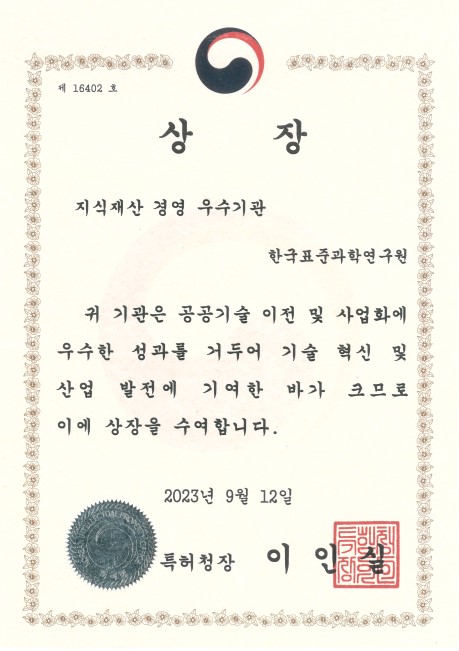 제 16402 호
상 장
지식재산 경영 우수기관
한국표준과학연구원
귀 기관은 공공기술 이전 및 사업화에
우수한 성과를 거두어 기술 혁신 및
산업 발전에 기여한 바가 크므로
이에 상장을 수여합니다.
2023년 9월 12일
특허청장 이 인 실